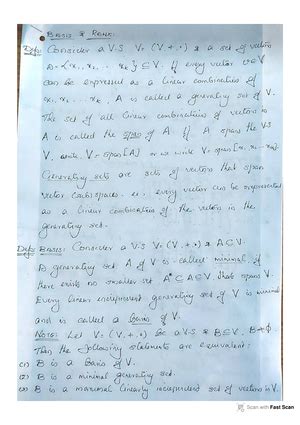 BASIS & RANK:
Defn: Consider a V.S V= (V, +, ·) & a set of vectors
A = {x1, x2, ... xk} ⊆ V. If every vector v ∈ V
can be expressed as a linear combination of
x1, x2, ... xk, A is called a generating set of V.
The set of all linear combinations of vectors in
A is called the span of A. If A spans the V.S
V, write, V = span[A] or we write V = span[x1, ... xk]
Generating sets are sets of vectors that span
vector (sub)spaces. i.e., every vector can be represented
as a linear combination of the vectors in the
generating set.
Defn: BASIS: Consider a V.S V= (V, +, ·) & A ⊆ V.
A generating set A of V is called minimal if
there exists no smaller set Ã ⊆ A ⊆ V, that spans V.
Every linear independent generating set of V is minimal
and is called a Basis of V.
Note: Let V= (V, +, ·) be a V.S & B ⊆ V, B ≠ ϕ
Then the following statements are equivalent:
(1) B is a Basis of V.
(2) B is a minimal generating set.
(3) B is a maximal linearly independent set of vectors in V.
Scan with Fast Scan